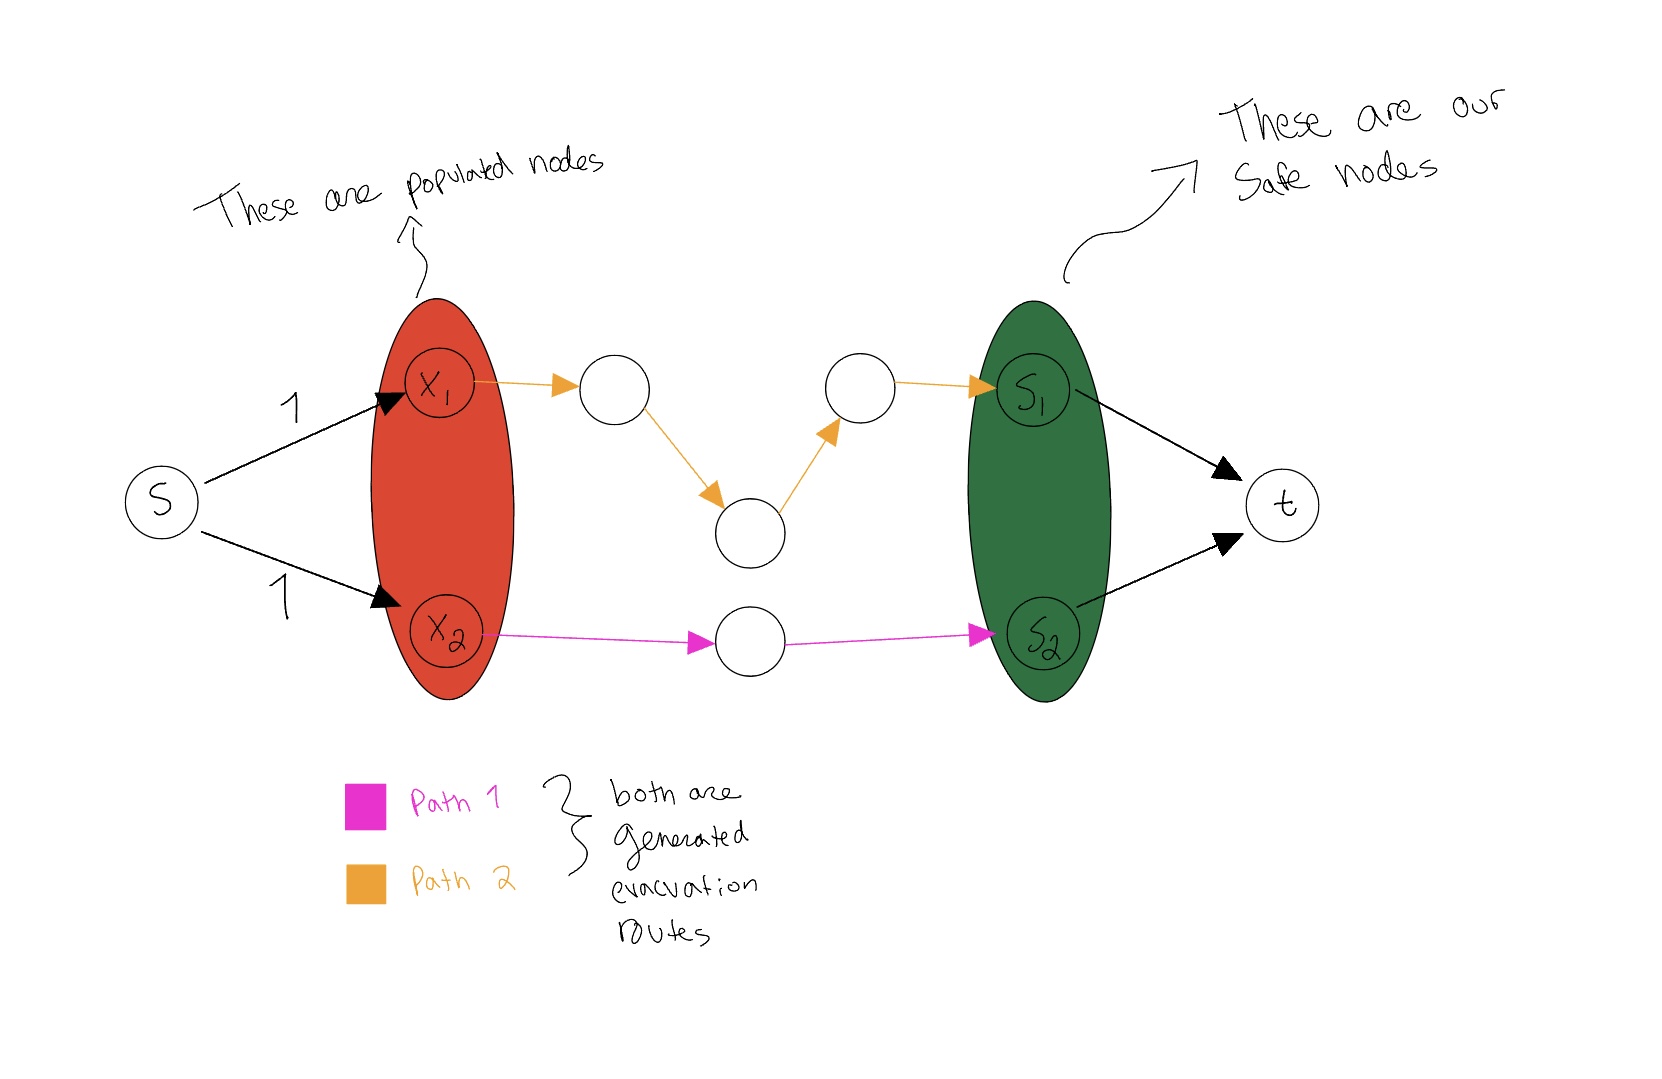 These are our
Safe nodes
These are populated nodes
1
X1
S1
S
t
1
X2
S2
Path 1
Path 2
both are
generated
evacuation
routes